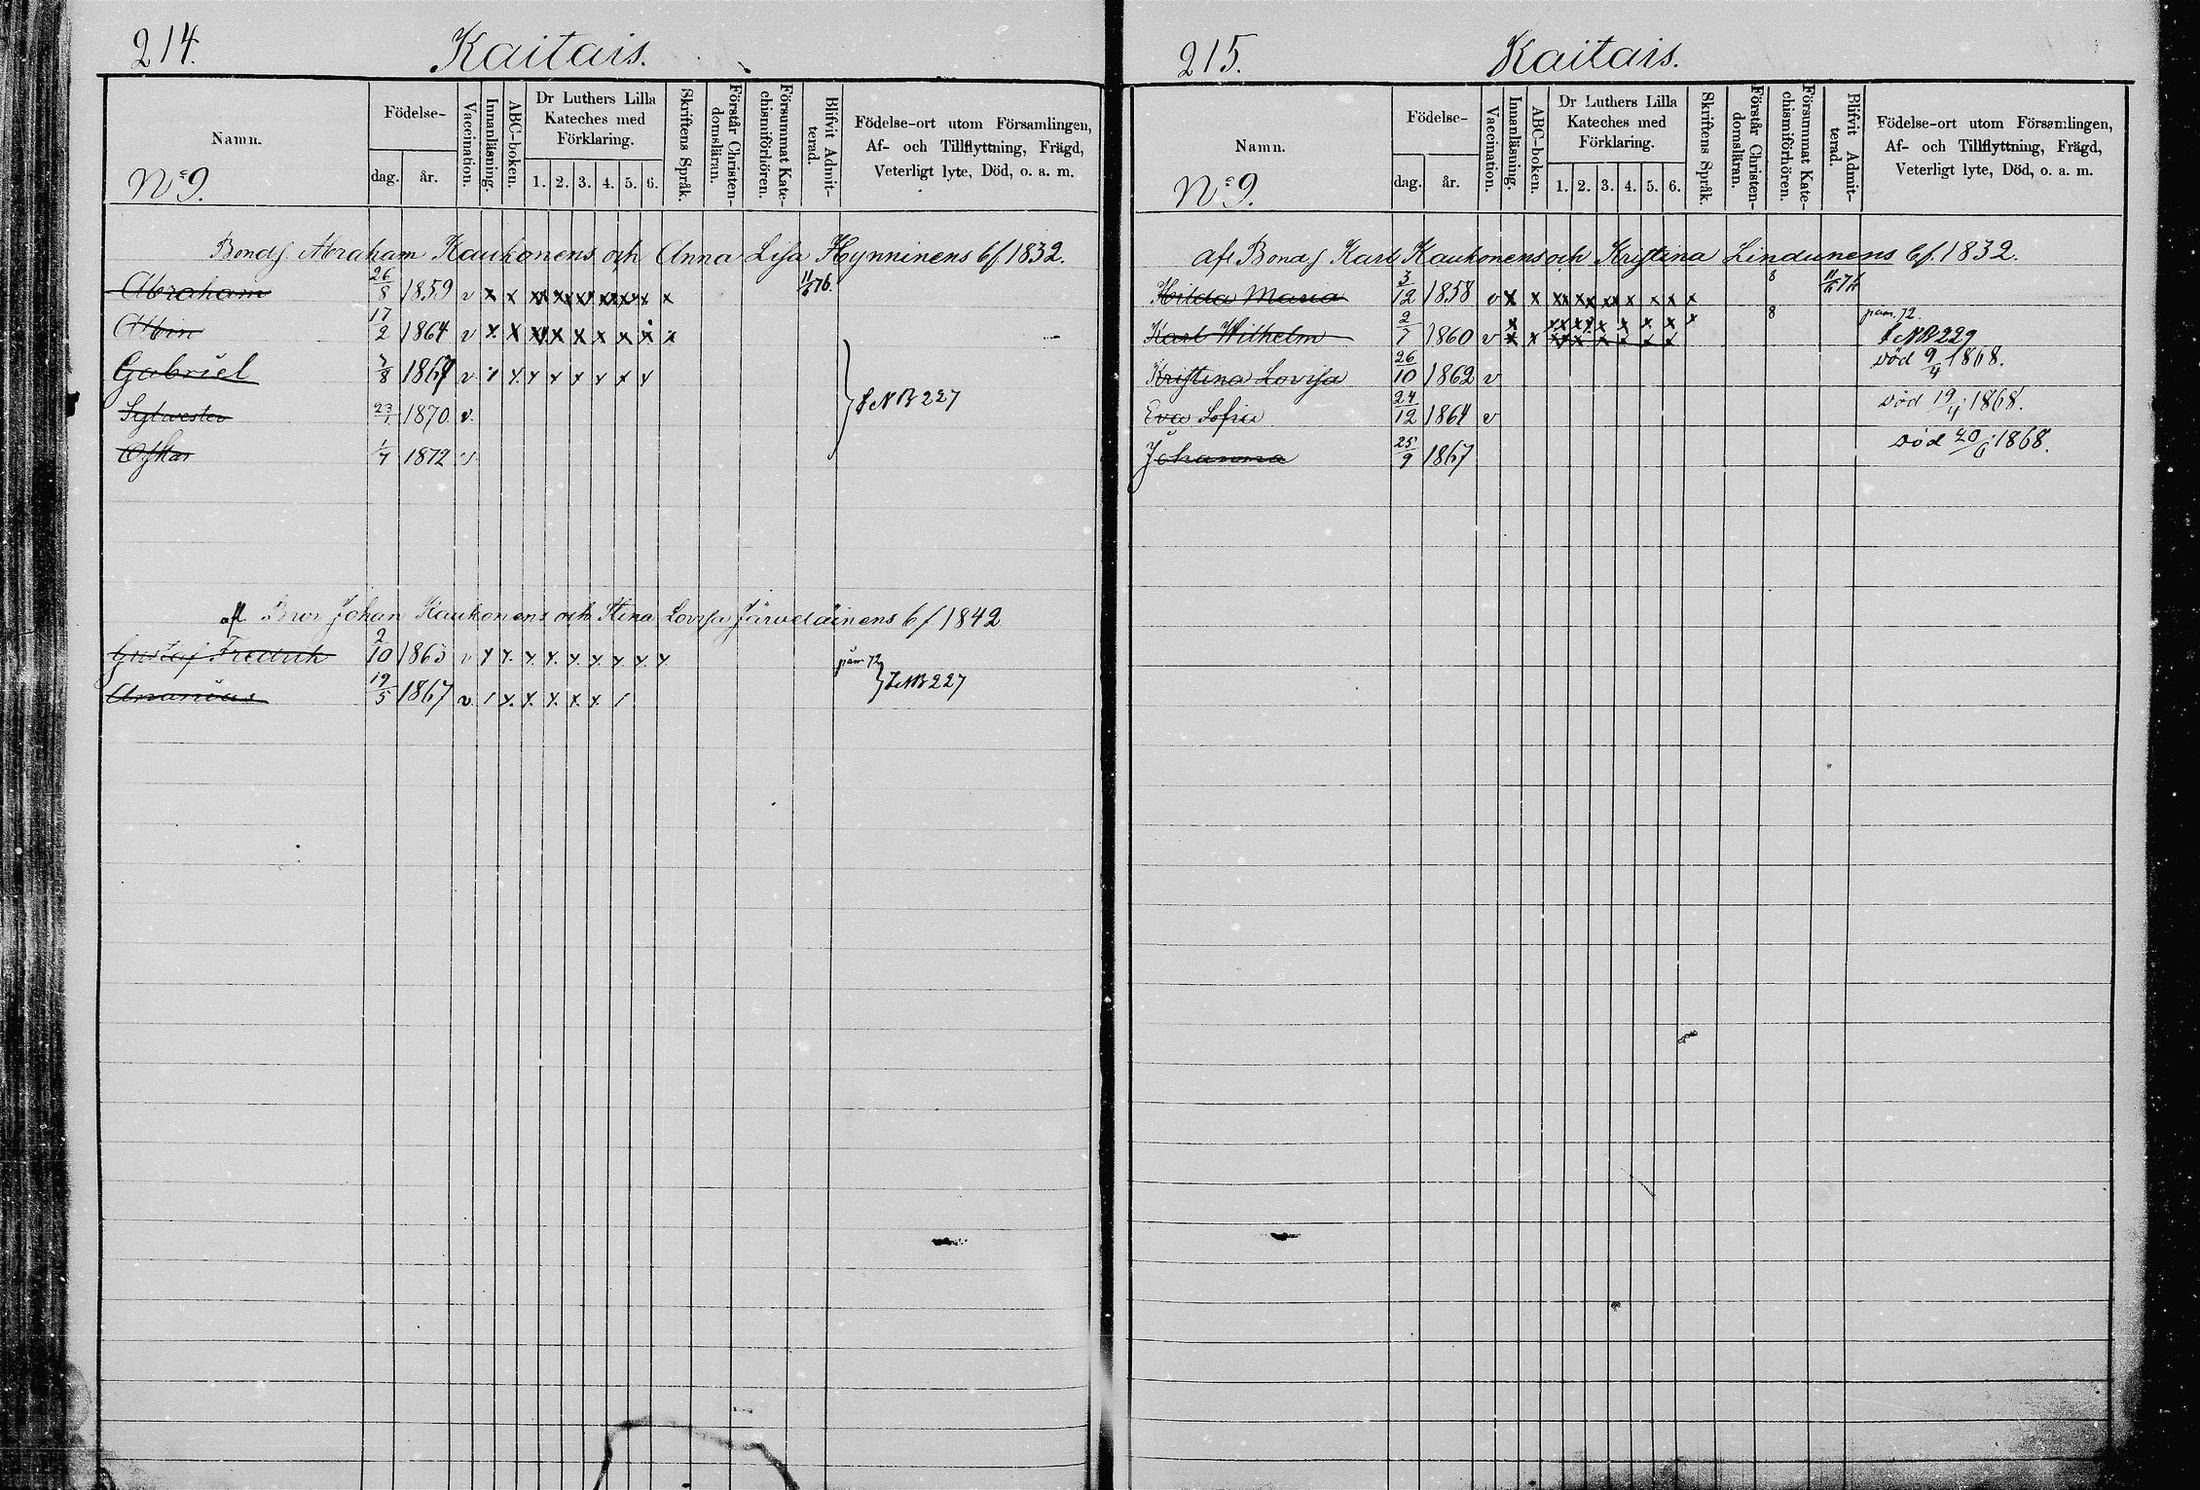 214.
Kaitais.
Namn.
Födelse-
dag.
år.
Vaccination.
Innanläsning.
ABC-boken.
Dr Luthers Lilla
Kateches med
Förklaring.
1. 2. 3. 4. 5. 6.
Skriftens Språk.
Förstår Christen-
domsläran.
Försummat Kate-
chismiförhören.
Blifvit Admit-
terad.
Födelse-ort utom Församlingen,
Af- och Tillflyttning, Frägd,
Veterligt lyte, Död, o. a. m.
No 9.
Abraham Kaukonens och Anna Lisa Hynninens bf 1832.
Abraham 26/8 1859 v x x xx xx xx xx xx x x 11/6 76.
Albin 17/2 1864 v x x xx x x x x x x
Gabriel 7/8 1867 v x x x x x x x x
Sylvester 23/1 1870 v. NB 227
Oskar 1/7 1872 v
af Bror Johan Kaukonens och Stina Lovisa Järveläinens bf 1842
Gustaf Fredrik 2/10 1863 v x x x x x x x x
Ananias 19/5 1867 v / x x x x x / NB 227
215.
Kaitais.
Namn.
Födelse-
dag.
år.
Vaccination.
Innanläsning.
ABC-boken.
Dr Luthers Lilla
Kateches med
Förklaring.
1. 2. 3. 4. 5. 6.
Skriftens Språk.
Förstår Christen-
domsläran.
Försummat Kate-
chismiförhören.
Blifvit Admit-
terad.
Födelse-ort utom Församlingen,
Af- och Tillflyttning, Frägd,
Veterligt lyte, Död, o. a. m.
No 9.
afl Karl Kaukonens och Kristina Lindunens bf. 1832.
Hilda Maria 3/12 1858 v x x xx xx xx x x x x 8
Karl Wilhelm 2/7 1860 v x x xx x x x x x x 8 NB 229
Kristina Lovisa 26/10 1862 v död 9/4 1868.
Eva Sofia 24/12 1864 v död 19/4 1868.
Johanna 25/9 1867 död 20/6 1868.